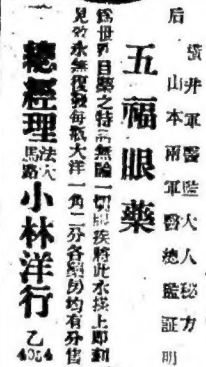 橫井軍醫監大人秘方
后山本兩軍醫總監証明
五福眼藥
為世界目藥之特品無論一切眼疾將此水搽上即刻
見效永無復發每瓶大洋一角二分各藥房均有分售
總經理法大馬路小林洋行
乙4054